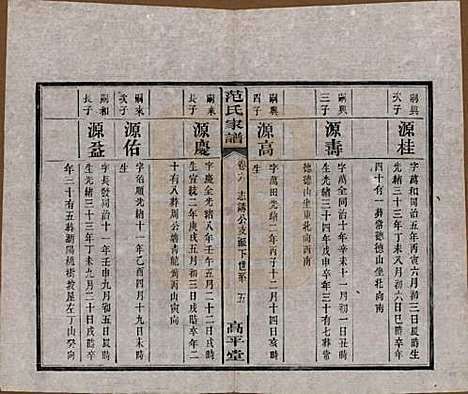 嗣興
次子
源桂
字萬和同治五年丙寅六月初六日巳時生
光緒三十三年丁未八月初六日巳時卒年
四十有一葬常德德山坐北向南
嗣興
三子
源壽
字萬全同治十年辛未九月初九日亥時
生光緒三十四年戊申卒年三十七葬常
德德山坐東北向西南
嗣興
四子
源高
字萬田光緒二年丙子十二月十四日亥時
生
范氏家譜
卷六
志謗公支派下世系
五
高平堂
嗣來
長子
源慶
字慶全光緒八年壬午五月二十二日戌時
生宣統二年庚戌五月初三日戌時卒年二
十有八葬周公塘青龍嘴丙山寅向
嗣來
次子
源佑
字佑順光緒十一年乙酉四月十九日未時
生
嗣和
長子
源益
字長發同治十一年壬申九月初五日辰時
生光緒三十三年丁未九月二十日戌時卒
年三十有五葬湖潤橋樹坡屋左丁山癸向